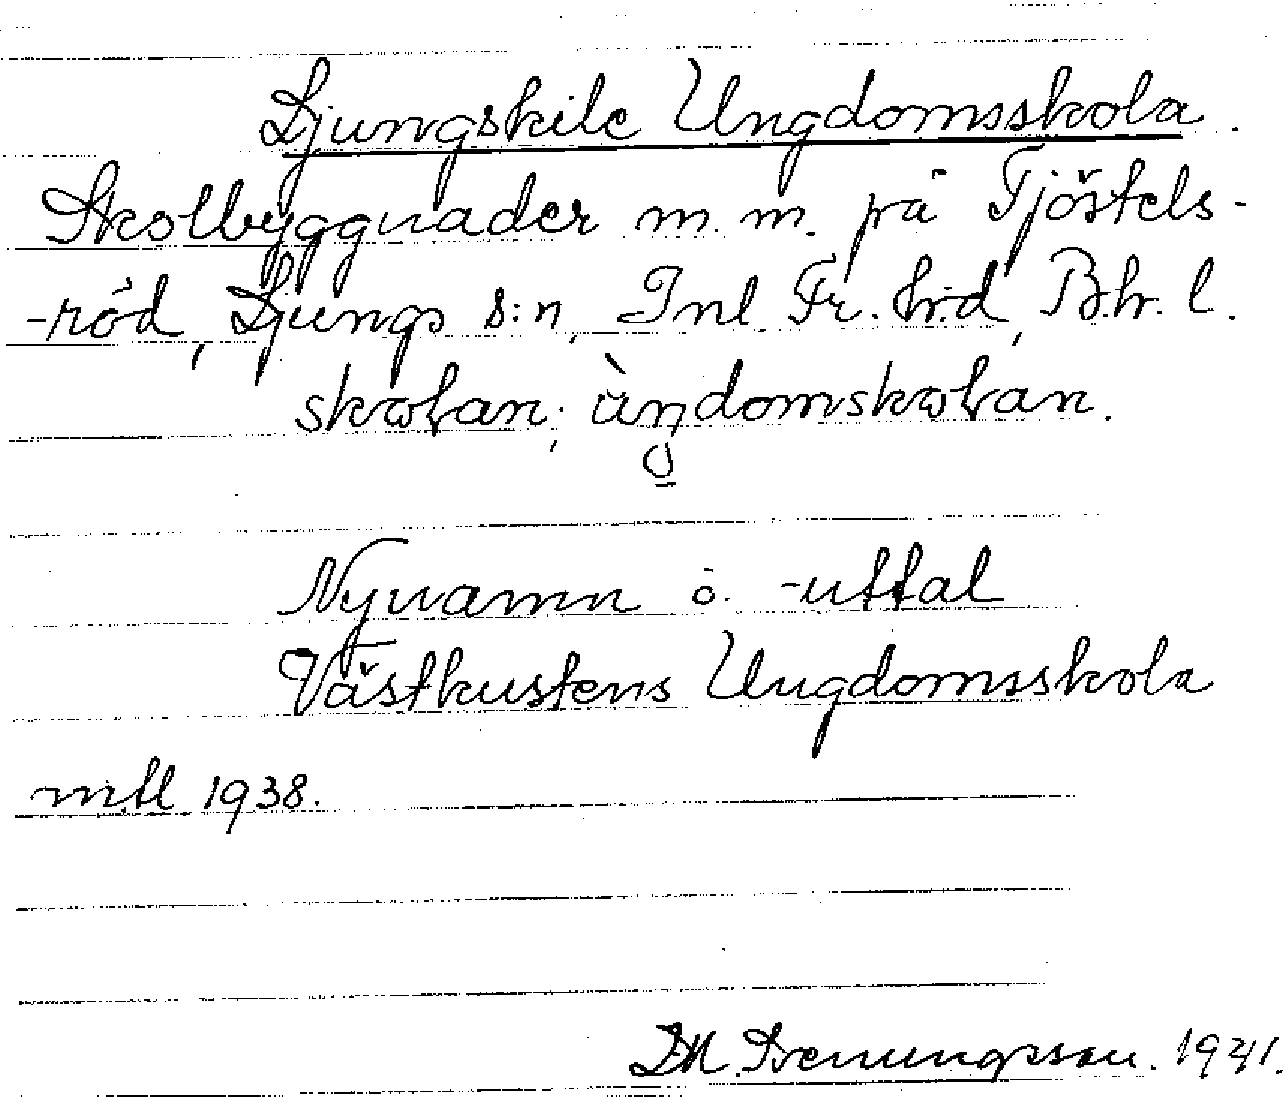 Ljungskile Ungdomsskola.
Skolbyggnader m. m. på Tjöstels-
-röd, Ljungs s:n, Inl. Fr. hrd, Bh. l.
skolan; ùŋdomskolan.
Nynamn o. -uttal
Västkustens Ungdomsskola
mtl 1938.
1941.